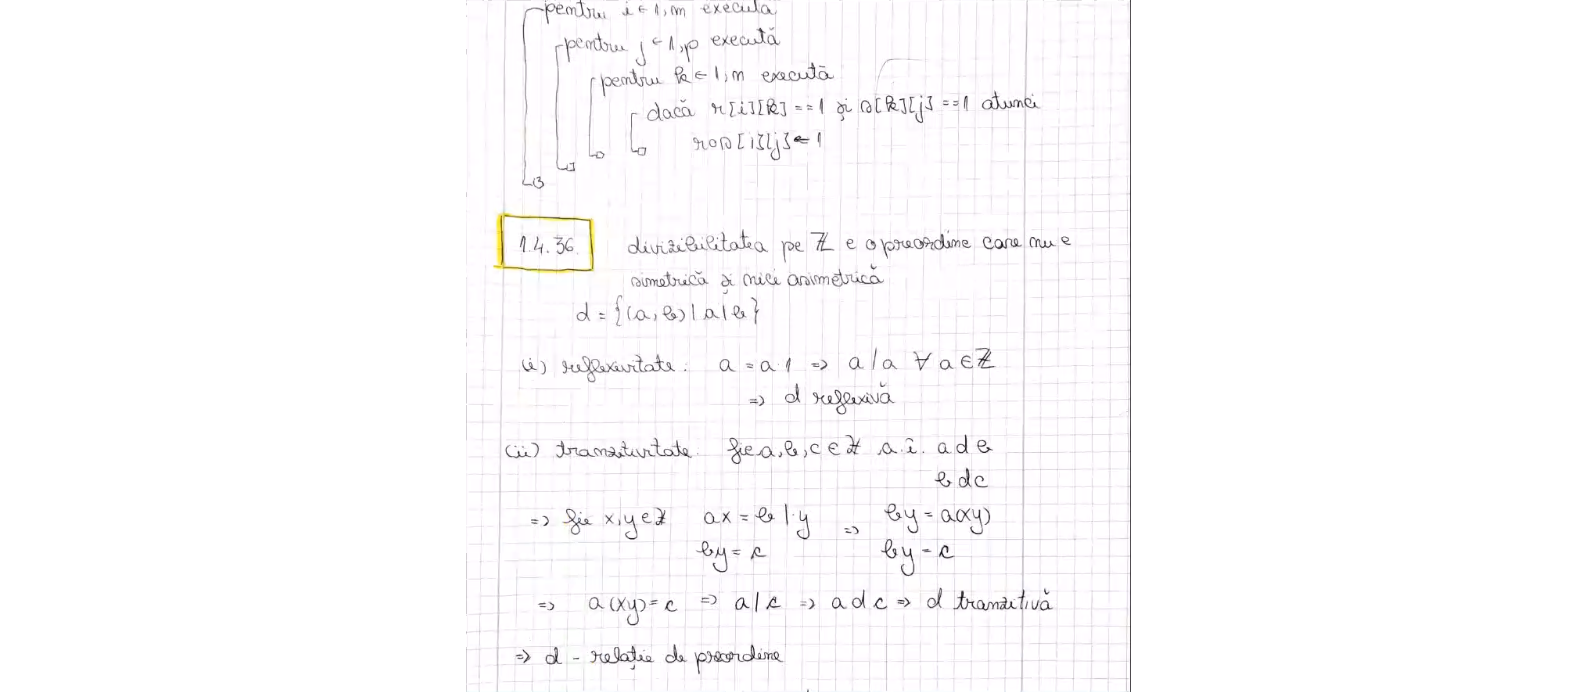 pentru i ← 1,m execută
pentru j ← 1,p execută
pentru k ← 1,n execută
dacă r[i][k] == 1 și s[k][j] == 1 atunci
ros[i][j] ← 1
1.4.36. divizibilitatea pe ℤ e o preordine care nu e
simetrică și nici asimetrică
d = {(a, b) | a | b}
(i) reflexivitate: a = a·1 => a | a ∀ a ∈ ℤ
=> d reflexivă
(ii) tranzitivitate. fie a, b, c ∈ ℤ a.î. a d b
b d c
=> fie x, y ∈ ℤ ax = b |·y => by = a(xy)
by = c by = c
=> a(xy) = c => a | c => a d c => d tranzitivă
=> d - relație de preordine